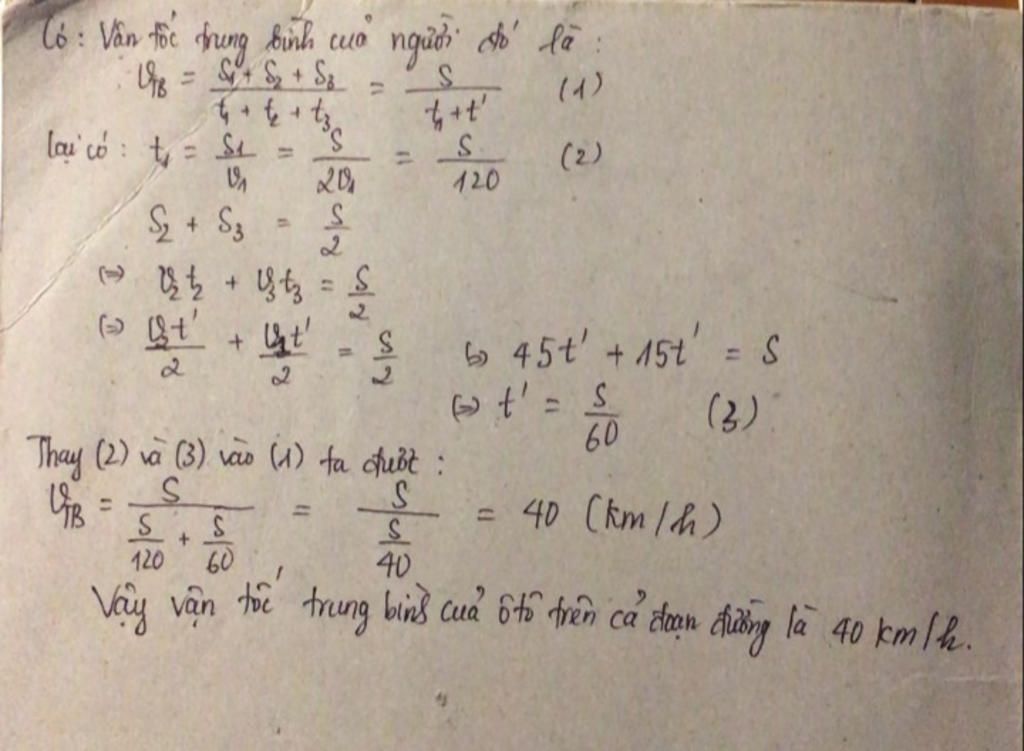 Có : Vận tốc trung bình của người đó là :
V_TB = (S1 + S2 + S3)/(t1 + t2 + t3) = S/(t1 + t') (1)
lại có : t1 = S1/V1 = S/2V1 = S/120 (2)
S2 + S3 = S/2
(=) V2t2 + V3t3 = S/2
(=) V2t'/2 + V3t'/2 = S/2 (=) 45t' + 15t' = S
(=) t' = S/60 (3)
Thay (2) và (3) vào (1) ta được :
V_TB = S/(S/120 + S/60) = S/(S/40) = 40 (km/h)
Vậy vận tốc trung bình của ôtô trên cả đoạn đường là 40 km/h.